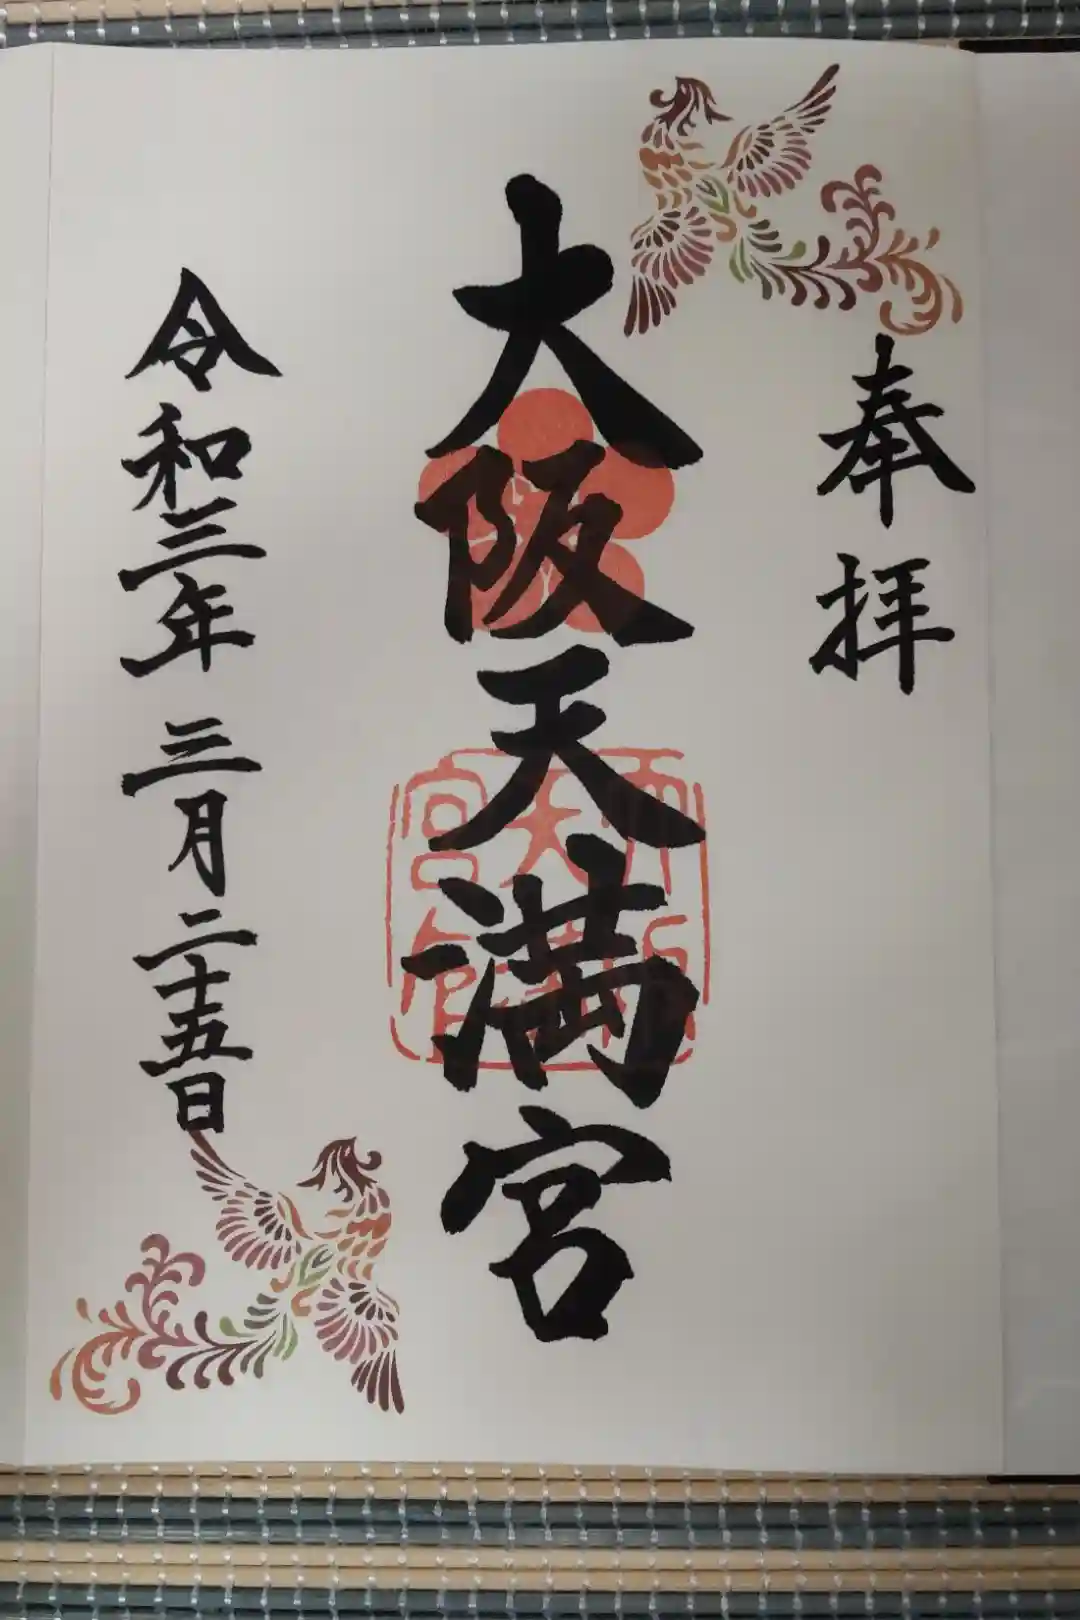 奉拝
大阪天満宮
令和三年 三月二十五日